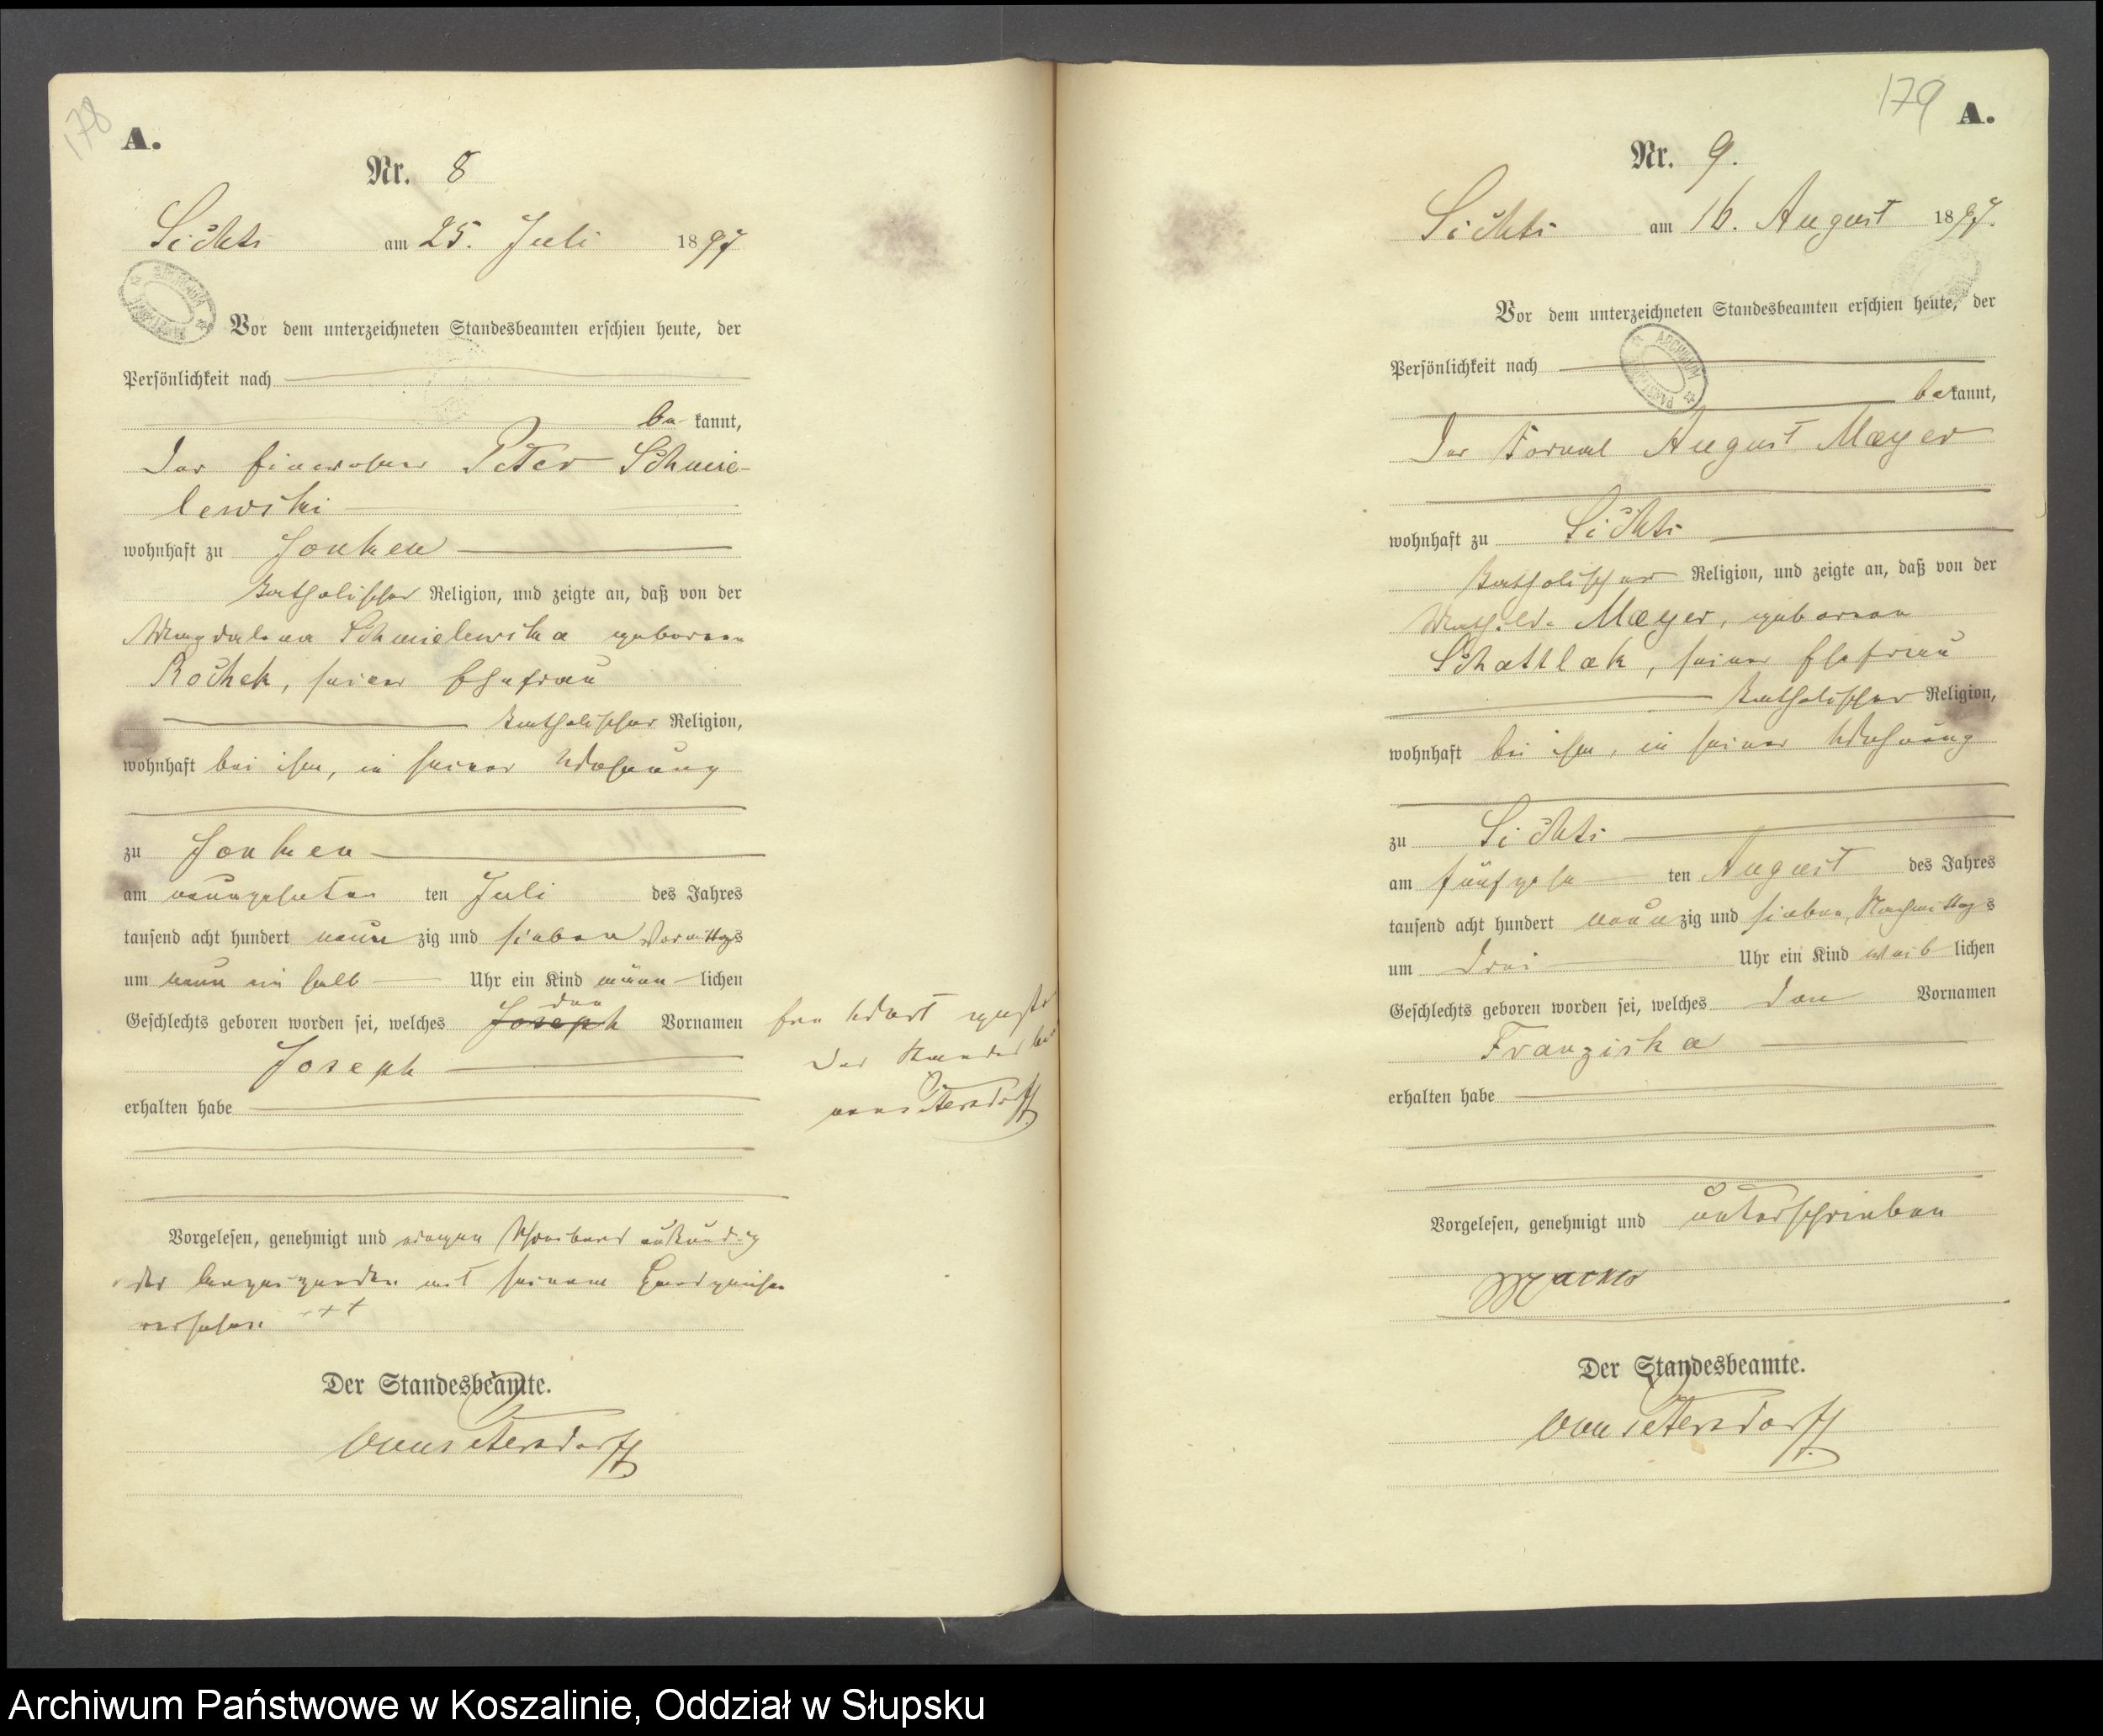 178
A.
Nr. 8
Sichts am 25. Juli 1897
Vor dem unterzeichneten Standesbeamten erschien heute, der
Persönlichkeit nach
be kannt,
der Einwohner Peter Schmie-
lewski
wohnhaft zu Jonken
katholischer Religion, und zeigte an, daß von der
Magdalena Schmielewska geborene
Rochek, seiner Ehefrau
katholischer Religion,
wohnhaft bei ihm, in seiner Wohnung
zu Jonken
am neunzehnten ten Juli des Jahres
tausend acht hundert neun zig und sieben Vormittags
um neun ein halb Uhr ein Kind männ lichen
den
Geschlechts geboren worden sei, welches Joseph Vornamen
Joseph
erhalten habe
Ein Wort
Der
von Petersdorff
Vorgelesen, genehmigt und wegen Schreibens unkundig
des Anzeigenden mit seinem Handzeichen
versehen +++
Der Standesbeamte.
von Petersdorff
179
A.
Nr. 9.
Sichts am 16. August 1897.
Vor dem unterzeichneten Standesbeamten erschien heute, der
Persönlichkeit nach
be kannt,
der Fornal August Mayer
wohnhaft zu Sichts
katholischer Religion, und zeigte an, daß von der
Mathilde Mayer, geborene
Schattlak, seiner Ehefrau
katholischer Religion,
wohnhaft bei ihm, in seiner Wohnung
zu Sichts
am fünfzehn ten August des Jahres
tausend acht hundert neun zig und sieben, Nachmittags
um drei Uhr ein Kind weib lichen
Geschlechts geboren worden sei, welches den Vornamen
Franziska
erhalten habe
Vorgelesen, genehmigt und unterschrieben
Der Standesbeamte.
von Petersdorff.
Archiwum Państwowe w Koszalinie, Oddział w Słupsku